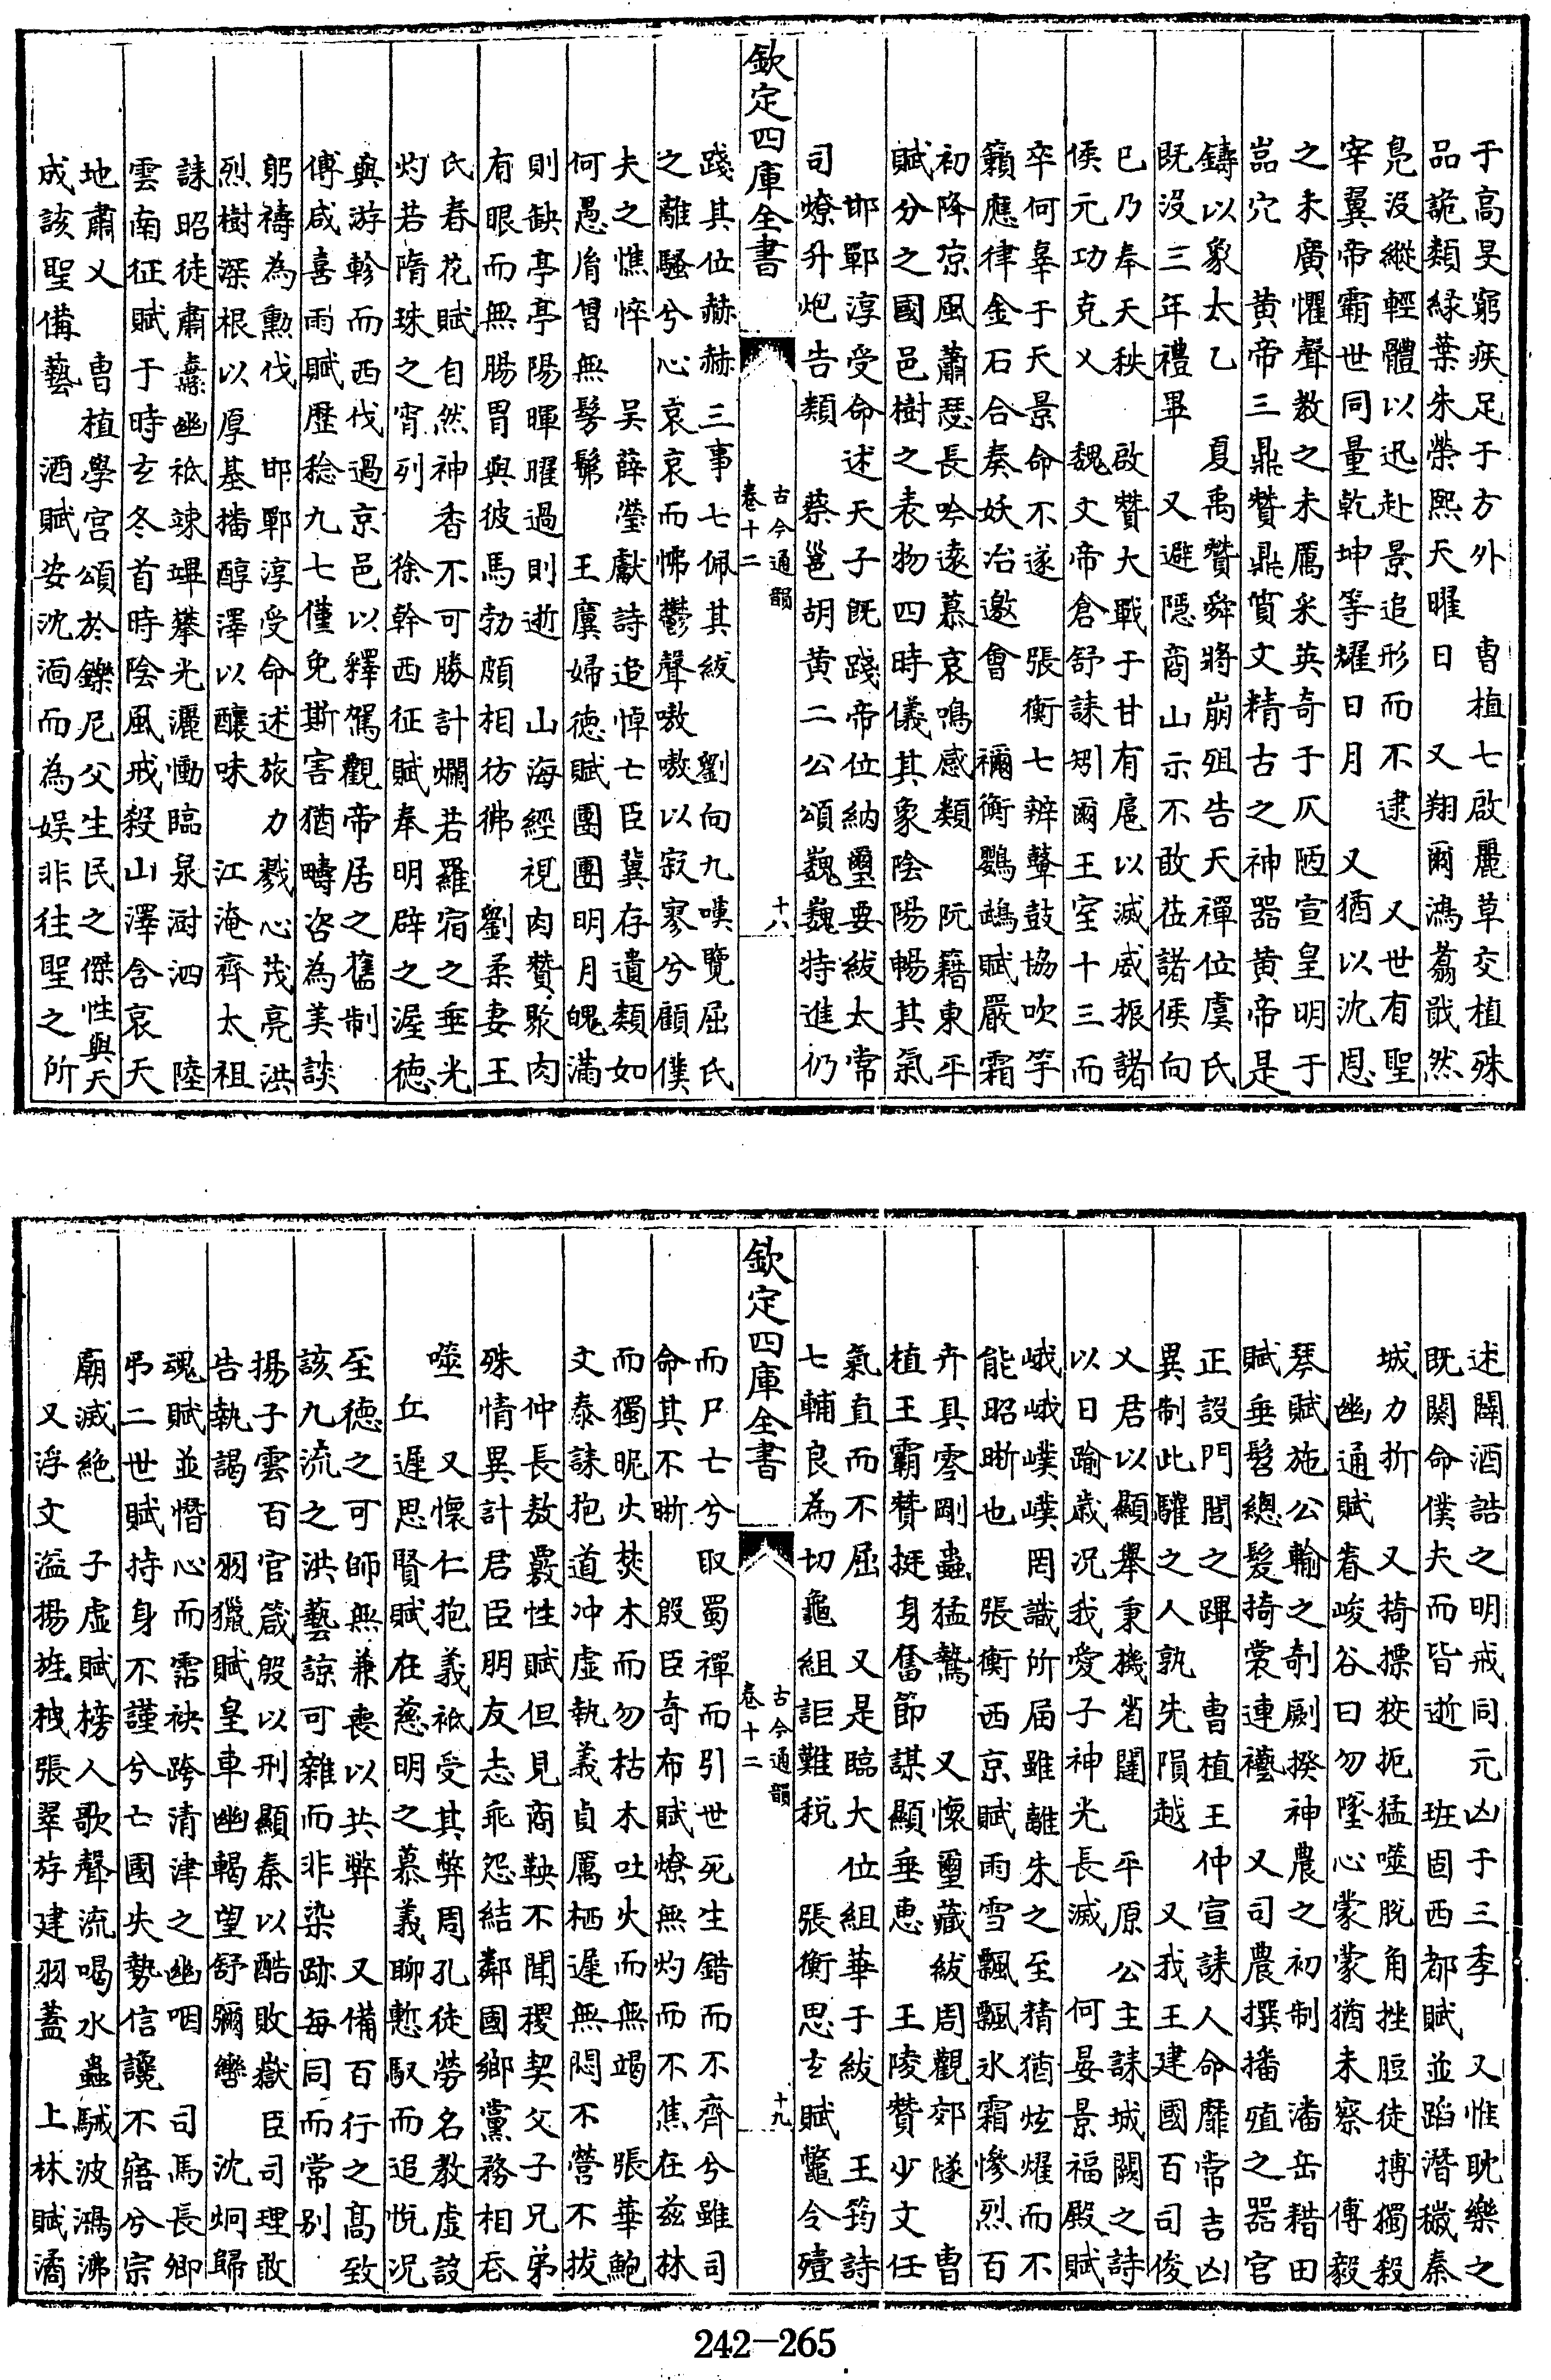 于高旻窮疾足于方外　曹植七啟麗草交植殊
品詭類緑葉朱榮熙天曜日　又翔爾鴻翥戢然
鳬没縱輕體以迅赴景追形而不逮　又世有聖
宰翼帝霸世同量乾坤等耀日月　又猶以沈恩
之未廣懼聲教之未厲采英奇于仄陋宣皇明于
嵓穴　黄帝三鼎贊鼎質文精古之神器黄帝是
鑄以象太乙　夏禹贊舜將崩殂告天禪位虞氏
既没三年禮畢　又避隠商山示不敢莅諸侯向
已乃奉天秩　啟贊大戰于甘有扈以滅威振諸
侯元功克乂　魏文帝倉舒誄矧爾王室十三而
卒何辜于天景命不遂　張衡七辨鼙鼓協吹竽
籟應律金石合奏妖冶邀會　禰衡鸚鵡賦嚴霜
初降凉風蕭瑟長吟逺慕哀鳴感類　阮籍東平
賦分之國邑樹之表物四時儀其象陰陽暢其氣
邯鄲淳受命述天子既踐帝位納璽要紱太常
司燎升炮告類　蔡邕胡黄二公頌巍巍特進仍
欽定四庫全書　古今通韻　卷十二　十八
踐其位赫赫三事七佩其紱　劉向九嘆覽屈氏
之離騷兮心哀哀而怫鬱聲嗷嗷以寂寥兮顧僕
夫之憔悴　吴薛瑩獻詩追悼亡臣冀存遺類如
何愚胤曽無髣髴　王廙婦徳賦團團明月魄滿
則缺亭亭陽暉曜過則逝　山海經視肉贊聚肉
有眼而無腸胃與彼馬勃頗相彷彿　劉柔妻王
氏春花賦自然神香不可勝計爛若羅宿之垂光
灼若隋珠之宵列　徐幹西征賦奉明辟之渥徳
與游軫而西伐過京邑以釋駕觀帝居之舊制
傅咸喜雨賦歴稔九七僅免斯害猶疇咨為美談
躬禱為勲伐　邯鄲淳受命述旅力戮心茂亮洪
烈樹深根以厚基播醇澤以釀味　江淹齊太祖
誄昭徒肅纛幽祗竦蹕攀光灑慟臨泉澍泗　陸
雲南征賦于時玄冬首時陰風戒殺山澤含哀天
地肅乂　曹植學宫頌於鑠尼父生民之傑性與天
成該聖備藝　酒賦安沈湎而為娱非往聖之所
述闢酒誥之明戒同元凶于三季　又惟耽樂之
既闋命僕夫而皆逝　班固西都賦並蹈潛穢秦
城力折　又掎摽狡扼猛噬脱角挫脰徒搏獨殺
幽通賦眷峻谷曰勿墜心蒙蒙猶未察　傅毅
琴賦施公輸之剞劂揆神農之初制　潘岳耤田
賦垂髫總髮掎裳連襼　又司農撰播殖之器官
正設門閭之蹕　曹植王仲宣誄人命靡常吉凶
異制此驩之人孰先隕越　又我王建國百司俊
乂君以顯舉秉機省闥　平原公主誄城闕之詩
以日踰歳况我愛子神光長滅　何晏景福殿賦
峨峨嶫嶫罔識所届雖離朱之至精猶炫燿而不
能昭晰也　張衡西京賦雨雪飄飄氷霜慘烈百
卉具零剛蟲猛鷙　又懷璽藏紱周觀郊隧　曹
植王霸贊挺身奮節謀顯垂恵　王陵贊少文任
氣直而不屈　又是臨大位組華于紱　王筠詩
七輔良為切龜組詎難税　張衡思玄賦鼈令殪
欽定四庫全書　古今通韻　卷十二　十九
而尸亡兮取蜀禪而引世死生錯而不齊兮雖司
命其不晰　殷臣奇布賦燎無灼而不焦在兹林
而獨昵火焚木而勿枯木吐火而無竭　張華鮑
文泰誄抱道冲虚執義貞厲栖遲無悶不營不拔
仲長敖覈性賦但見商鞅不聞稷契父子兄弟
殊情異計君臣朋友志乖怨結鄰國鄉黨務相吞
噬　又懷仁抱義祗受其弊周孔徒勞名教虚設
丘遲思賢賦在慈明之慕義聊慙馭而追悦况
至徳之可師無兼喪以共弊　又備百行之髙致
該九流之洪藝諒可雜而非染跡每同而常别
揚子雲百官箴殷以刑顯秦以酷敗嶽臣司理敢
告執謁　羽獵賦皇車幽輵望舒彌轡　沈炯歸
魂賦並憯心而霑袂跨清津之幽咽　司馬長卿
弔二世賦持身不謹兮亡國失勢信讒不寤兮宗
廟滅絶　子虚賦榜人歌聲流喝水蟲駴波鴻沸
又浮文鷁揚旌栧張翠斿建羽蓋　上林賦潏
242—265